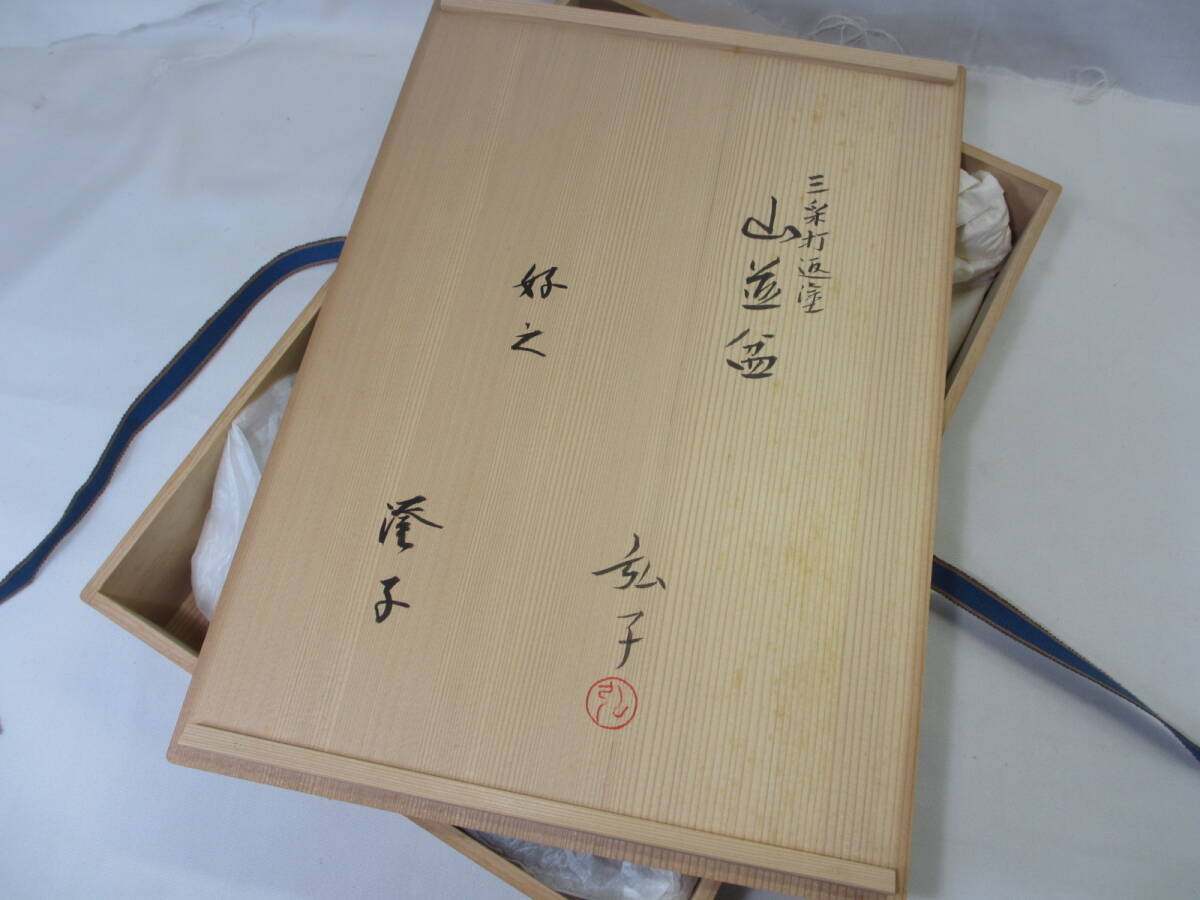 三彩打返塗
山並盆
弘子
弘
好之
瀅子